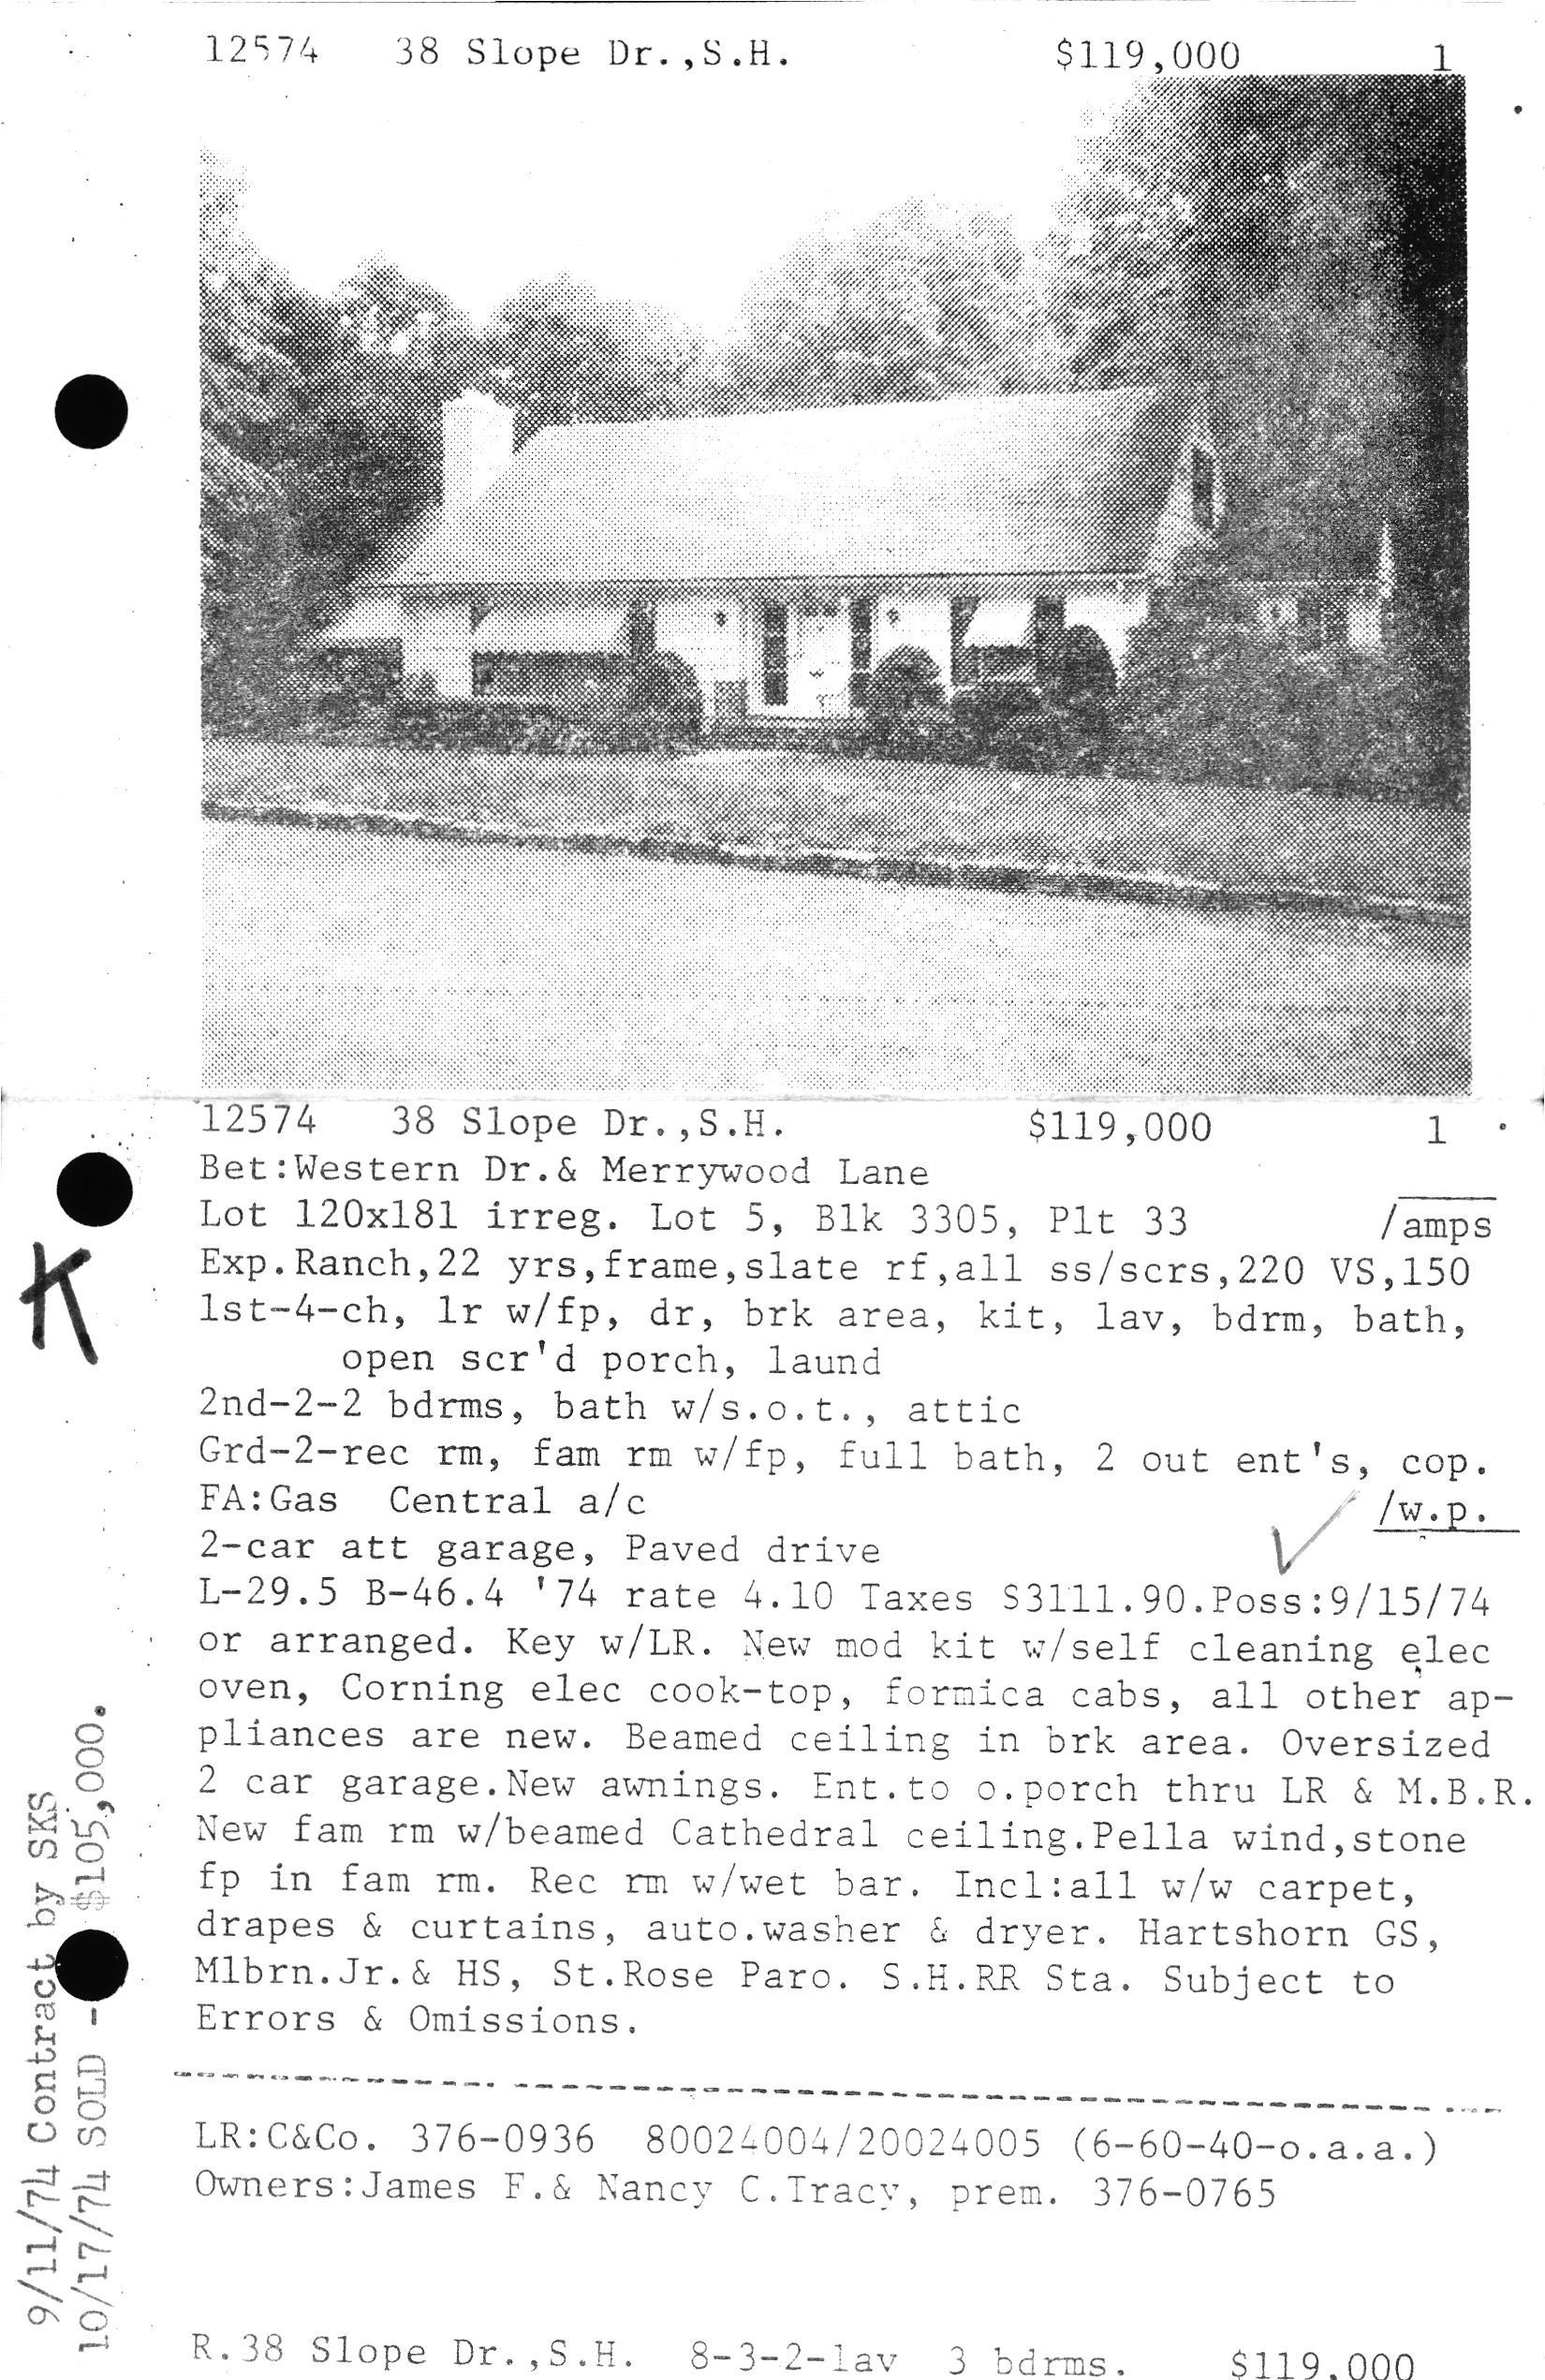 12574   38 Slope Dr.,S.H.   $119,000   1
12574   38 Slope Dr.,S.H.   $119,000   1
Bet:Western Dr.& Merrywood Lane
Lot 120x181 irreg. Lot 5, Blk 3305, Plt 33   /amps
Exp.Ranch,22 yrs,frame,slate rf,all ss/scrs,220 VS,150
1st-4-ch, lr w/fp, dr, brk area, kit, lav, bdrm, bath,
open scr'd porch, laund
2nd-2-2 bdrms, bath w/s.o.t., attic
Grd-2-rec rm, fam rm w/fp, full bath, 2 out ent's, cop.
FA:Gas  Central a/c   /w.p.
2-car att garage, Paved drive
L-29.5 B-46.4 '74 rate 4.10 Taxes $3111.90.Poss:9/15/74
or arranged. Key w/LR. New mod kit w/self cleaning elec
oven, Corning elec cook-top, formica cabs, all other ap-
pliances are new. Beamed ceiling in brk area. Oversized
2 car garage.New awnings. Ent.to o.porch thru LR & M.B.R.
New fam rm w/beamed Cathedral ceiling.Pella wind,stone
fp in fam rm. Rec rm w/wet bar. Incl:all w/w carpet,
drapes & curtains, auto.washer & dryer. Hartshorn GS,
Mlbrn.Jr.& HS, St.Rose Paro. S.H.RR Sta. Subject to
Errors & Omissions.
LR:C&Co. 376-0936  80024004/20024005 (6-60-40-o.a.a.)
Owners:James F.& Nancy C.Tracy, prem. 376-0765
R.38 Slope Dr.,S.H.  8-3-2-lav  3 bdrms.   $119,000
K
9/11/74 Contract by SKS
10/17/74 SOLD - $105,000.